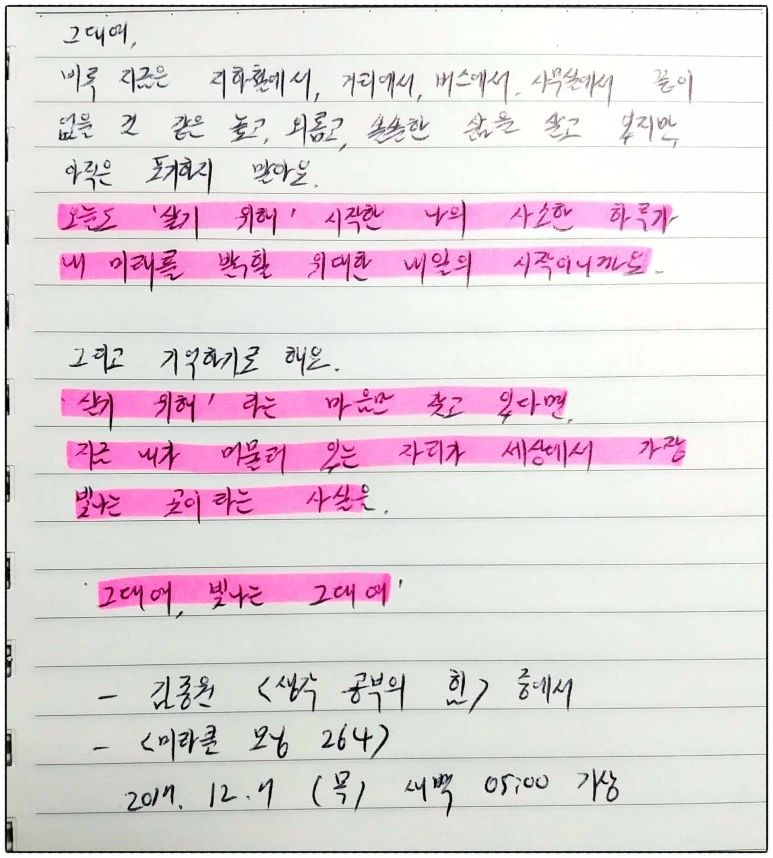 그대여,
비록 지금은 지하철에서, 거리에서, 버스에서, 사무실에서 끝이
없을 것 같은 놓고, 외롭고, 쓸쓸한 삶을 살고 있지만,
아직은 포기하지 말아요.
오늘도 '살기 위해' 시작한 나의 사소한 하루가
내 미래를 밝혀할 위대한 내일의 시작이니까요.
그리고 기억하기로 해요.
'살기 위해' 라는 마음만 갖고 있다면,
지금 내가 머물러 있는 자리가 세상에서 가장
빛나는 곳이라는 사실을.
'그대여, 빛나는 그대여'
- 김종원 <생각 공부의 힘> 중에서
- <미라클 모닝 264>
2017. 12. 7 (목) 새벽 05:00 기상